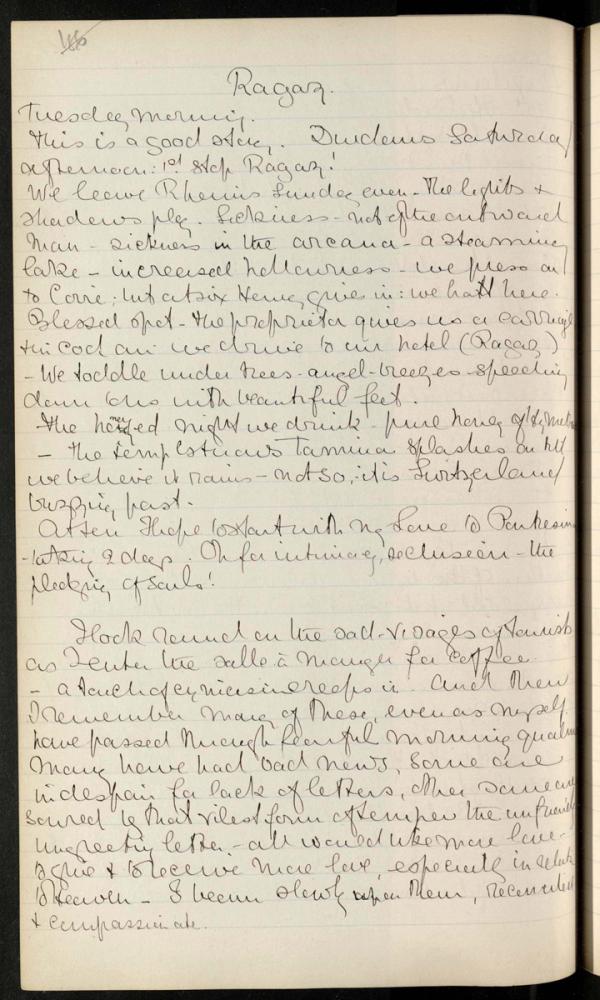 Ragaz.
Tuesday morning.
This is a good story. Saturday
afternoon: 1st stop Ragaz!
We leave Sunday even - The lights &
shadows play. Sickness - not of the outward
man - sickness in the arcana - a steaming
lake - increased hollowness - we press on
to Coire: but at six Henry gives in: we halt here.
Blessed spot - the proprietor gives us a carriage
& we drive to our hotel (Ragaz)
- We toddle under trees - angel-breezes - speeding
down to us with beautiful feet.
- the night we drink - pure honey of Hymettus
- the tempestuous Tamina splashes on till
we believe it rains - not so, it is Switzerland
buzzing past.
At ten I hope to start with my Love to
- taking 2 days. Oh for intimacy, seclusion - the
pledging of souls!
I look round on the sad visages of tourists
as I enter the salle à manger for coffee.
- a touch of cynicism creeps in. And then
I remember many of these, even as myself
have passed through fearful morning qualms
Many have had bad news, some are
in despair for lack of letters, other some are
soured by that vilest form of temper the
ungreeting letter - all would like more love -
to give & to receive more love, especially in
to Heaven - I beam slowly upon them, reconciled
& compassionate.